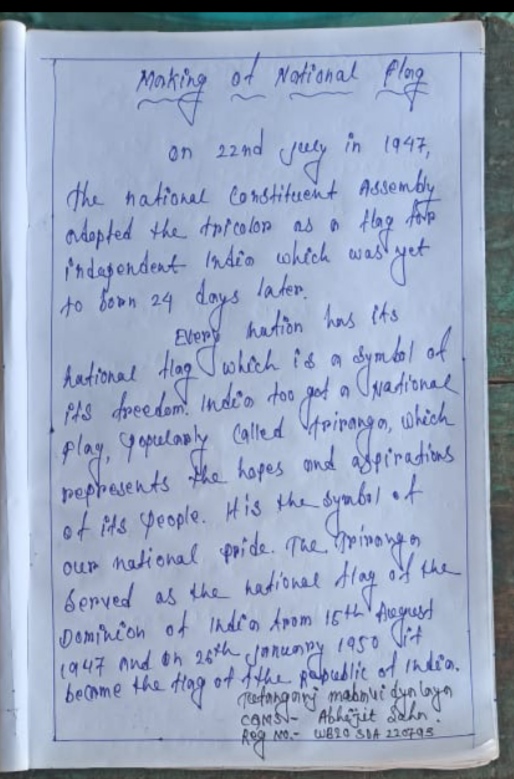 Making of National Flag
On 22nd July in 1947,
the national Constituent Assembly
adopted the tricolor as a flag for
independent India which was yet
to born 24 days later.
Every nation has its
national flag which is a symbol of
its freedom. India too got a National
Flag, popularly called Triranga, which
represents the hopes and aspirations
of its people. It is the symbol of
our national pride. The Triranga
served as the national flag of the
Dominion of India from 15th August
1947 and on 26th January 1950 it
become the flag of the Republic of India.
CQMS - Abhijit Sahn.
Reg No.- WB20 SDA 220795